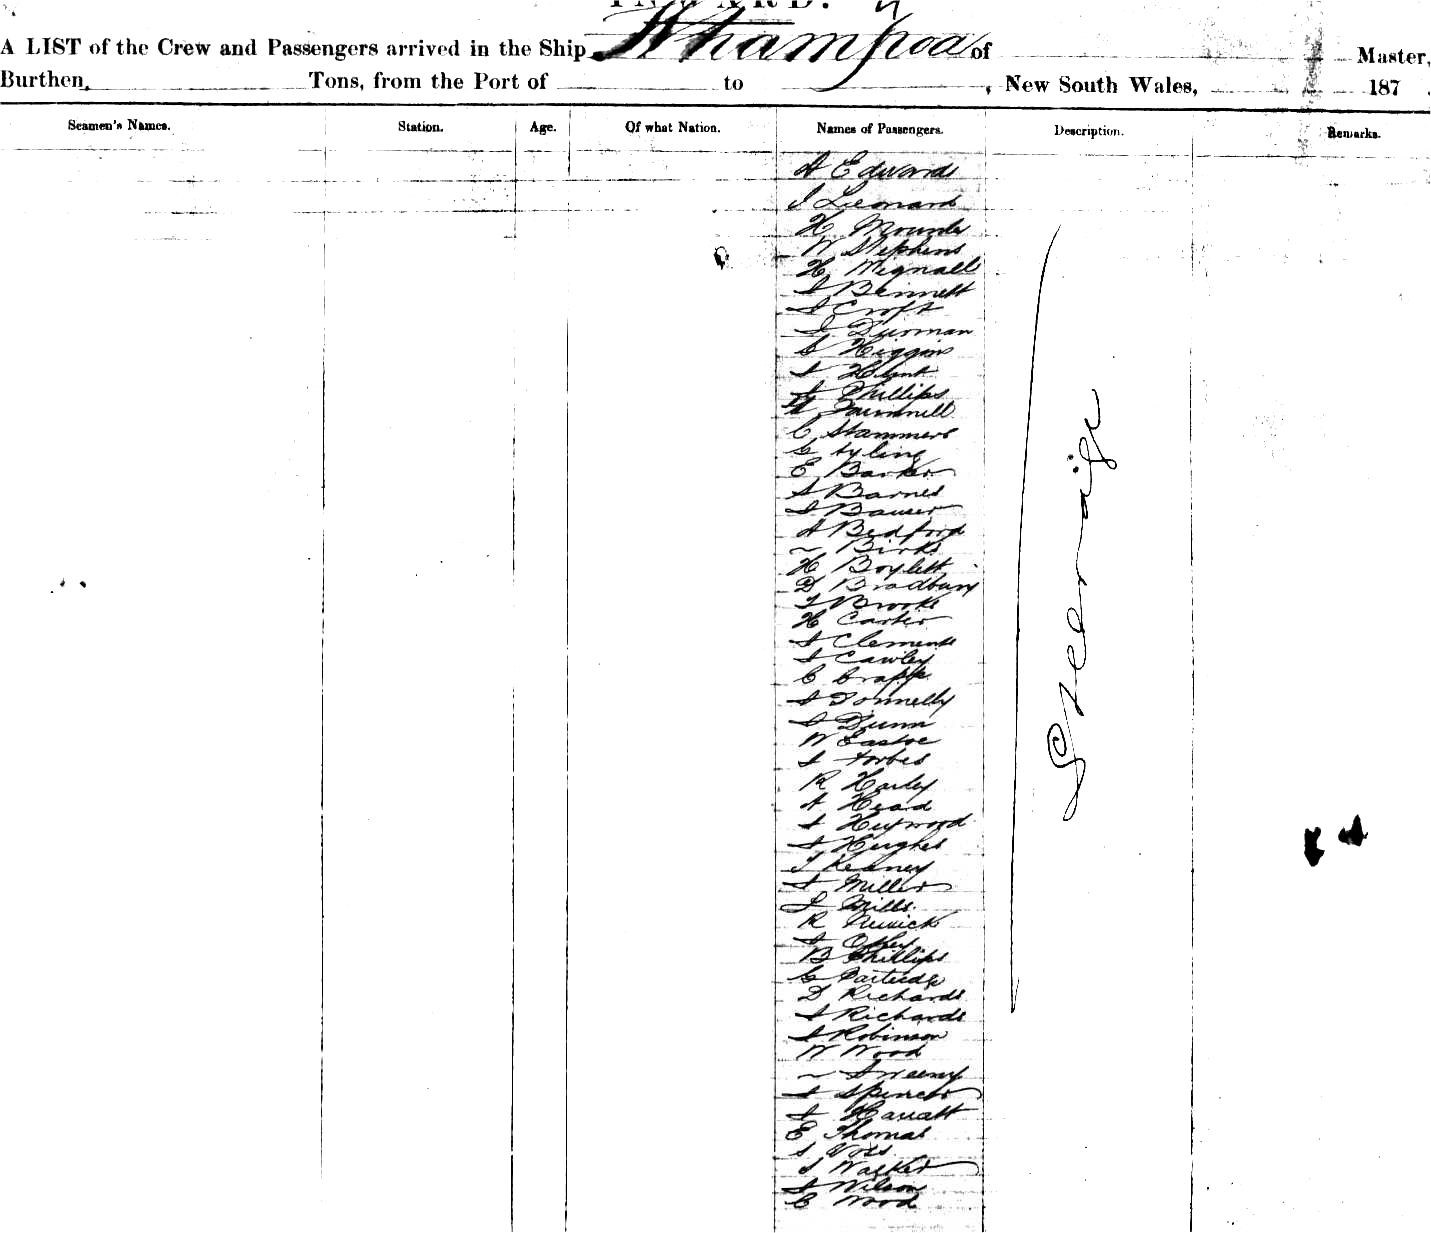 INWARD.
A LIST of the Crew and Passengers arrived in the Ship Whampoa of Master,
Burthen, Tons, from the Port of to , New South Wales, 187 .
Seamen's Names. Station. Age. Of what Nation. Names of Passengers. Description. Remarks.
A Edwards
J Leonard
H Mounter
W Stephens
H Mignall
J Bennett
J Croft
J Durman
C Higgins
J Hunt
J Phillips
C Stammers
G Tyling
E Barker
S Barnes
J Bauer
A Bedford
~ Birks
H Boylett
D Bradbury
T Brooks
H Carter
J Clements
J Cawley
C Crapp
J Donnelly
J Dunn
W Eastoe
J Forbes
R Harley
A Head
J Heywood
J Hughes
T Keaney
J Miller
J Mills
R
J
B Phillips
G Partridge
D Richards
J Richards
J Robinson
W Wood
~ Sweeny
J Spencer
J
E Thomas
S Voss
J Walker
J Wilson
C Wood
Steerage